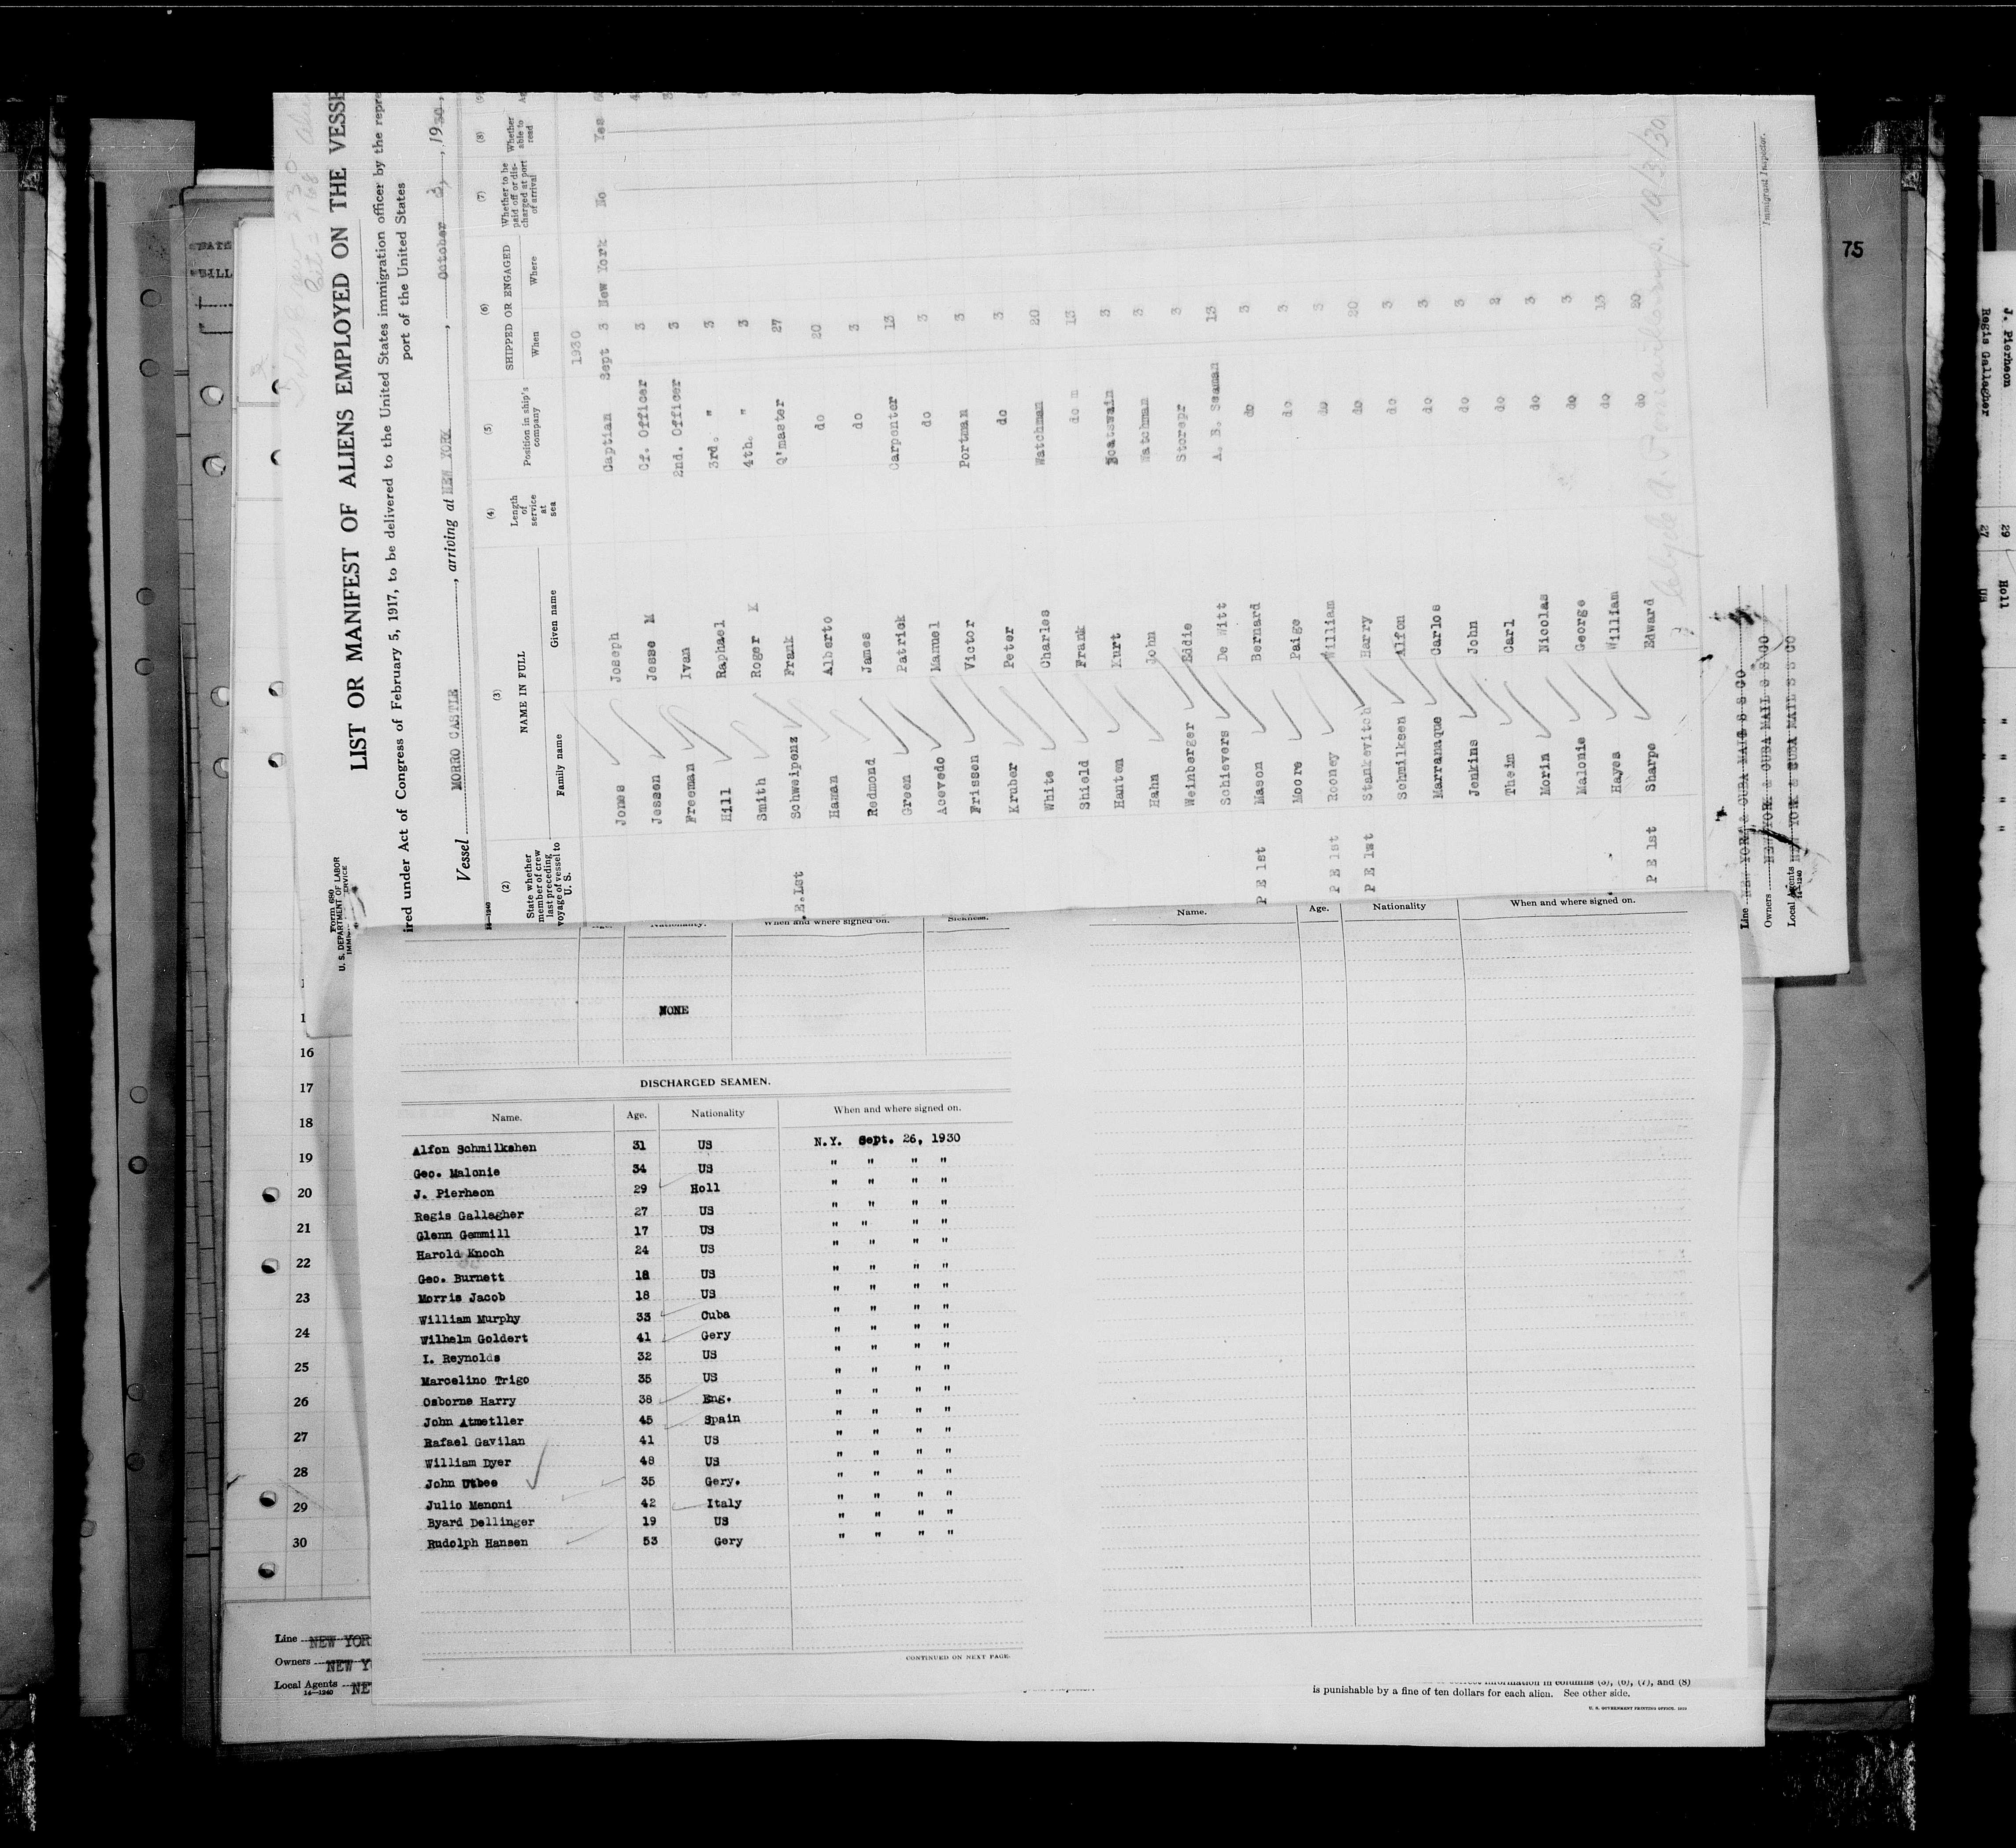 LIST OR MANIFEST OF ALIENS EMPLOYED ON THE VESSE
ired under Act of Congress of February 5, 1917, to be delivered to the United States immigration officer by the repre
port of the United States
Form 680
U. S. DEPARTMENT OF LABOR
Vessel MORRO CASTLE, arriving at NEW YORK, October 3, 1930,
(2) (3) (4) (5) (6) (7) (8)
State whether member of crew last preceding voyage of vessel to U. S.
NAME IN FULL
Family name Given name
Length of service at sea
Position in ship's company
SHIPPED OR ENGAGED
When Where
Whether to be paid off or discharged at port of arrival
Whether able to read
1930
Jones Joseph Captian Sept 3 New York No Yes
Jessen Jesse M Cf. Officer 3
Freeman Ivan 2nd. Officer 3
Hill Raphael 3rd. " 3
Smith Roger K 4th. " 3
.E.1st Schweipenz Frank Q'master 27
Haman Alberto do 20
Redmond James do 3
Green Patrick Carpenter 13
Acevedo Manuel do 3
Frissen Victor Portman 3
Kruber Peter do 3
White Charles Watchman 20
Shield Frank do m 13
Hanten Kurt Boatswain 3
Hahn John Watchman 3
Weinberger Eddie Storepr 3
Schievers De Witt A. B. Seaman 13
P E 1st Mason Bernard do 3
Moore Paige do 3
P E 1st Rooney William do 3
P E 1wt Stankevitch Harry do 20
Schmilksen Alfon do 3
Marranaque Carlos do 3
Jenkins John do 3
Theim Carl do 2
Morin Nicolas do 3
Malonie George do 3
Hayes William do 13
P E 1st Sharpe Edward do 20
10/3/30
Immigrant Inspector.
Line NEW YORK & CUBA MAIL S S CO
Owners NEW YORK & CUBA MAIL S S CO
Local Agents NEW YORK & CUBA MAIL S S CO
14—1240
75
J. Pierheon 29 Holl
Regis Gallagher 27 US
Nationality. When and where signed on. Sickness.
NONE
DISCHARGED SEAMEN.
Name. Age. Nationality When and where signed on.
Alfon Schmilkshen 31 US N.Y. Sept. 26, 1930
Geo. Malonie 34 US " " " "
J. Pierheon 29 Holl " " " "
Regis Gallagher 27 US " " " "
Glenn Gemmill 17 US " " " "
Harold Knoch 24 US " " " "
Geo. Burnett 18 US " " " "
Morris Jacob 18 US " " " "
William Murphy 33 Cuba " " " "
Wilhelm Goldert 41 Gery " " " "
I. Reynolds 32 US " " " "
Marcelino Trigo 35 US " " " "
Osborne Harry 38 Eng. " " " "
John Atmetller 45 Spain " " " "
Rafael Gavilan 41 US " " " "
William Dyer 48 US " " " "
John Utbee 35 Gery. " " " "
Julio Menoni 42 Italy " " " "
Byard Dellinger 19 US " " " "
Rudolph Hansen 53 Gery " " " "
CONTINUED ON NEXT PAGE.
Name. Age. Nationality When and where signed on.
16
17
18
19
20
21
22
23
24
25
26
27
28
29
30
Line NEW YOR
Owners NEW Y
Local Agents NE
14—1240
information in columns (5), (6), (7), and (8)
is punishable by a fine of ten dollars for each alien. See other side.
U. S. GOVERNMENT PRINTING OFFICE